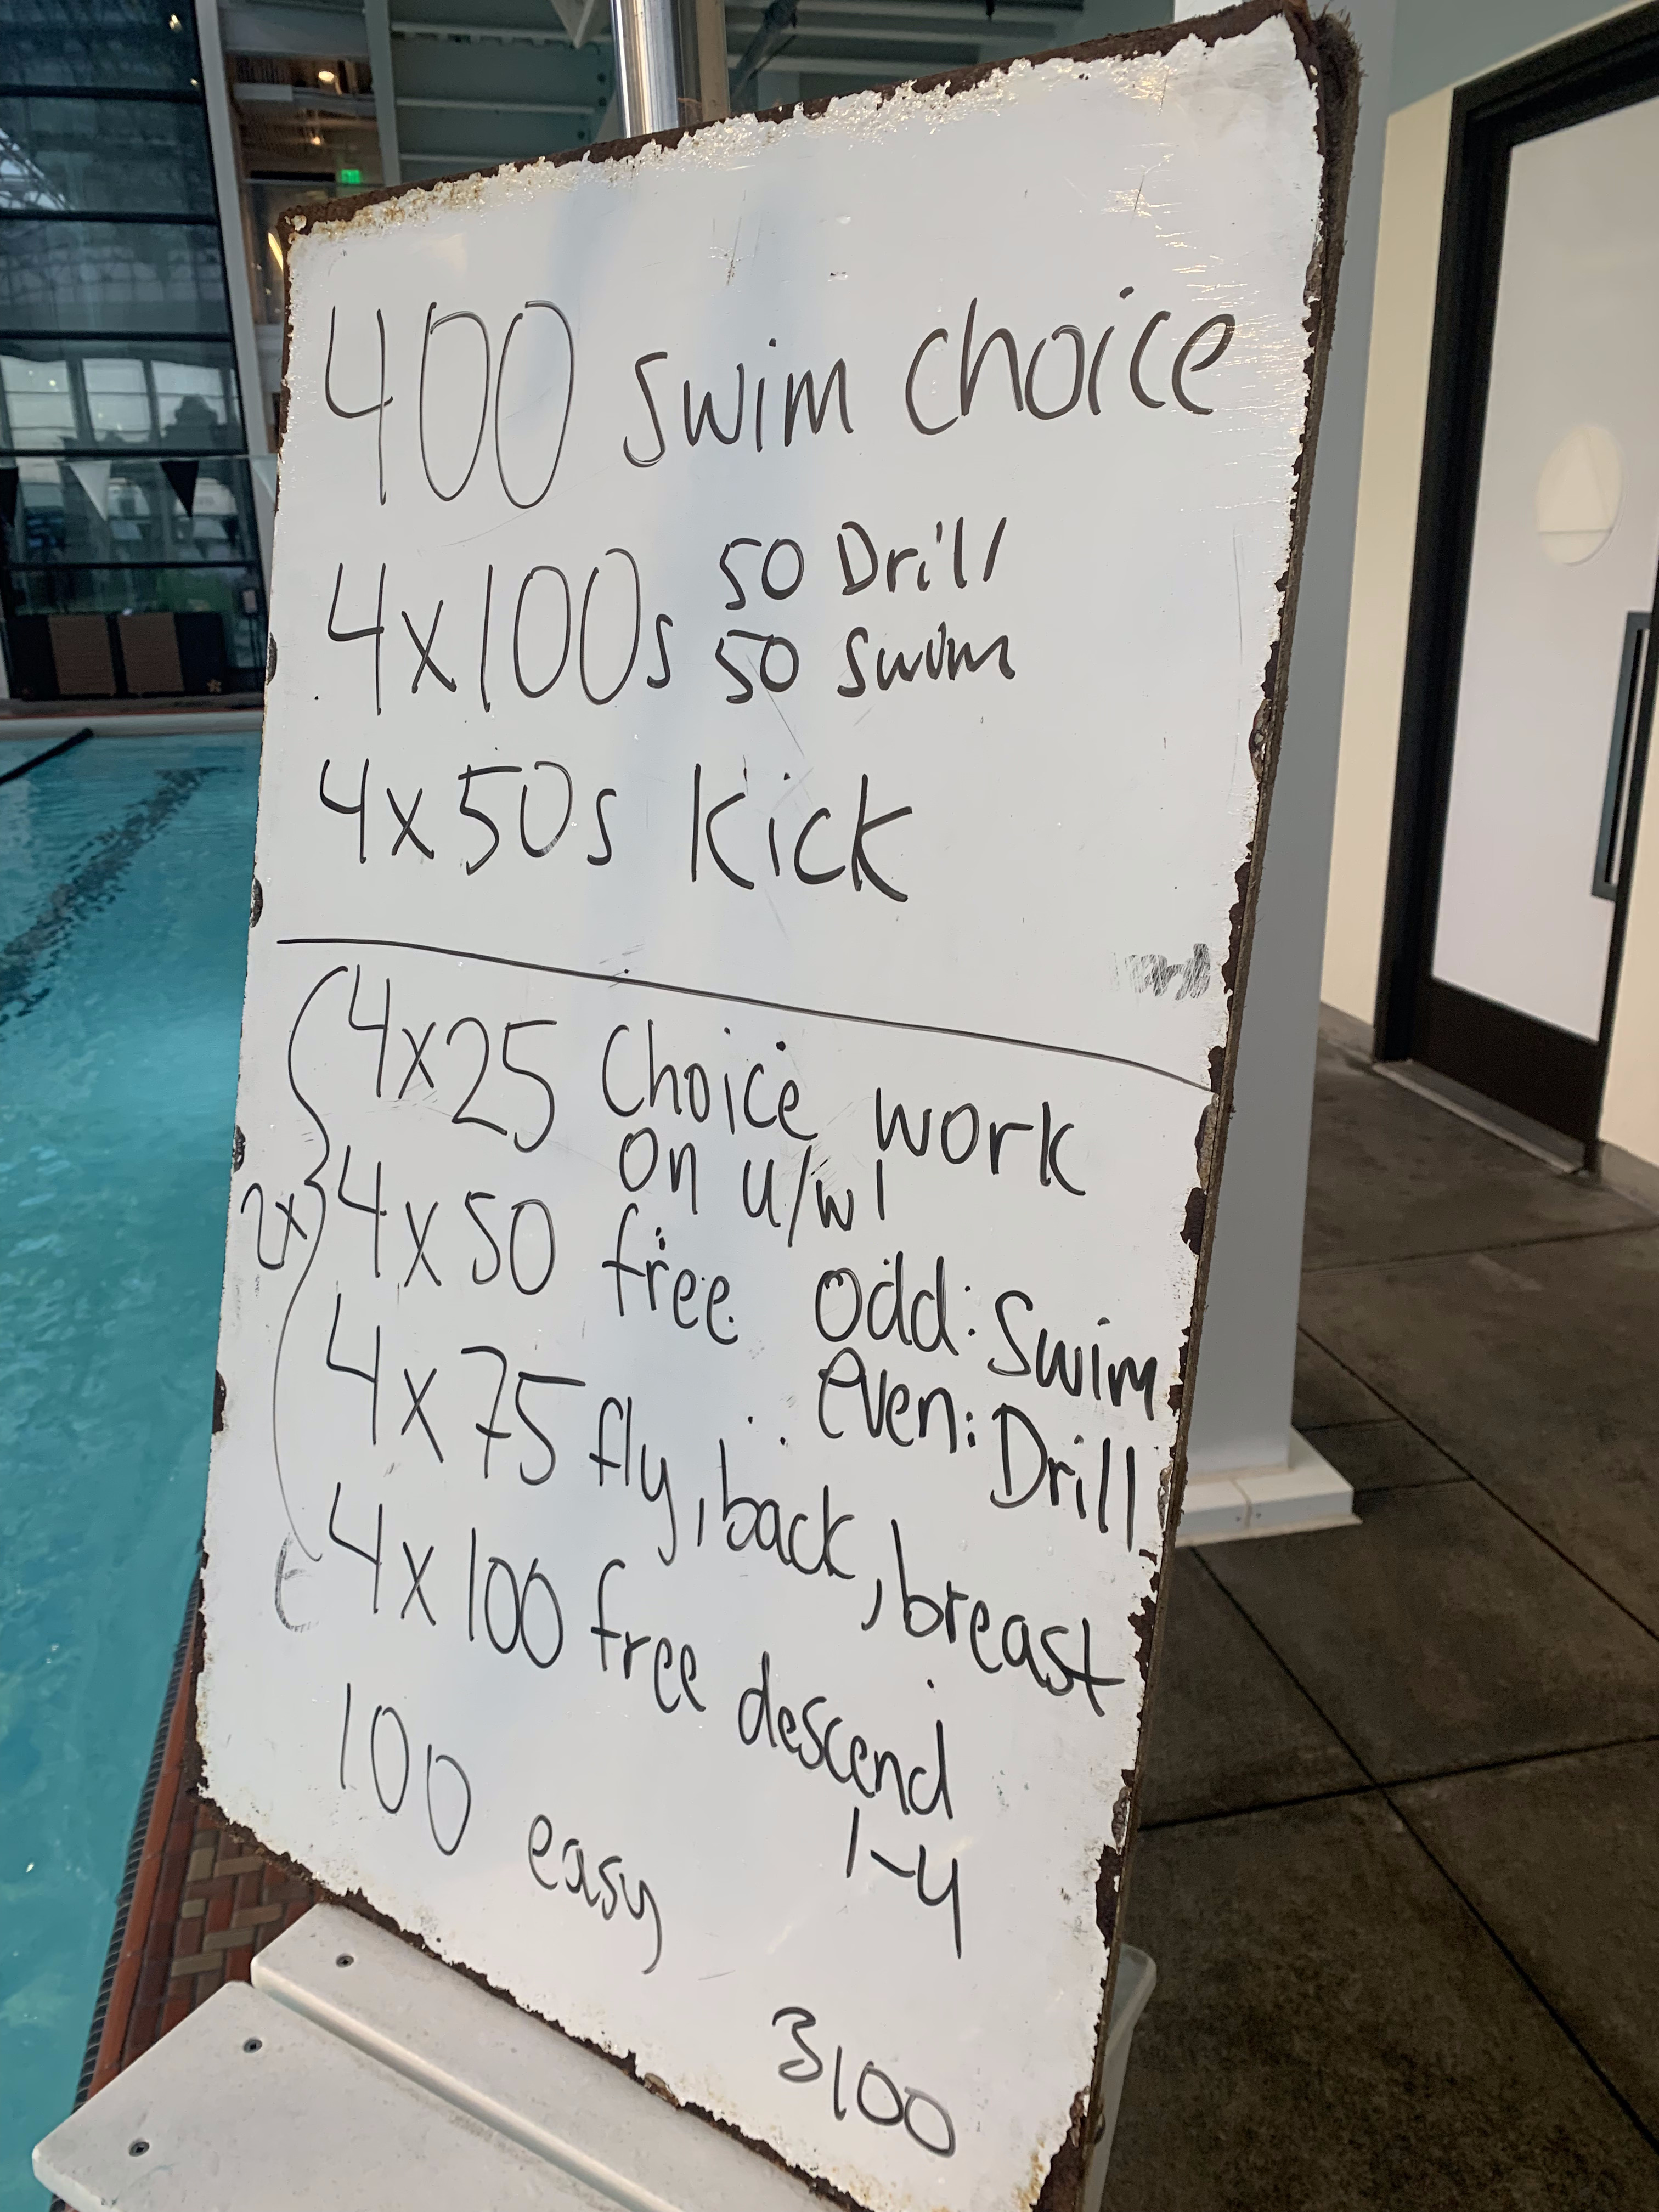 400 swim choice
4x100s 50 Drill
50 swim
4x50s Kick
4x25 Choice work
on u/w
2x
4x50 free odd: Swim
even: Drill
4x75 fly, back, breast
4x100 free descend
1-4
100 easy
3100